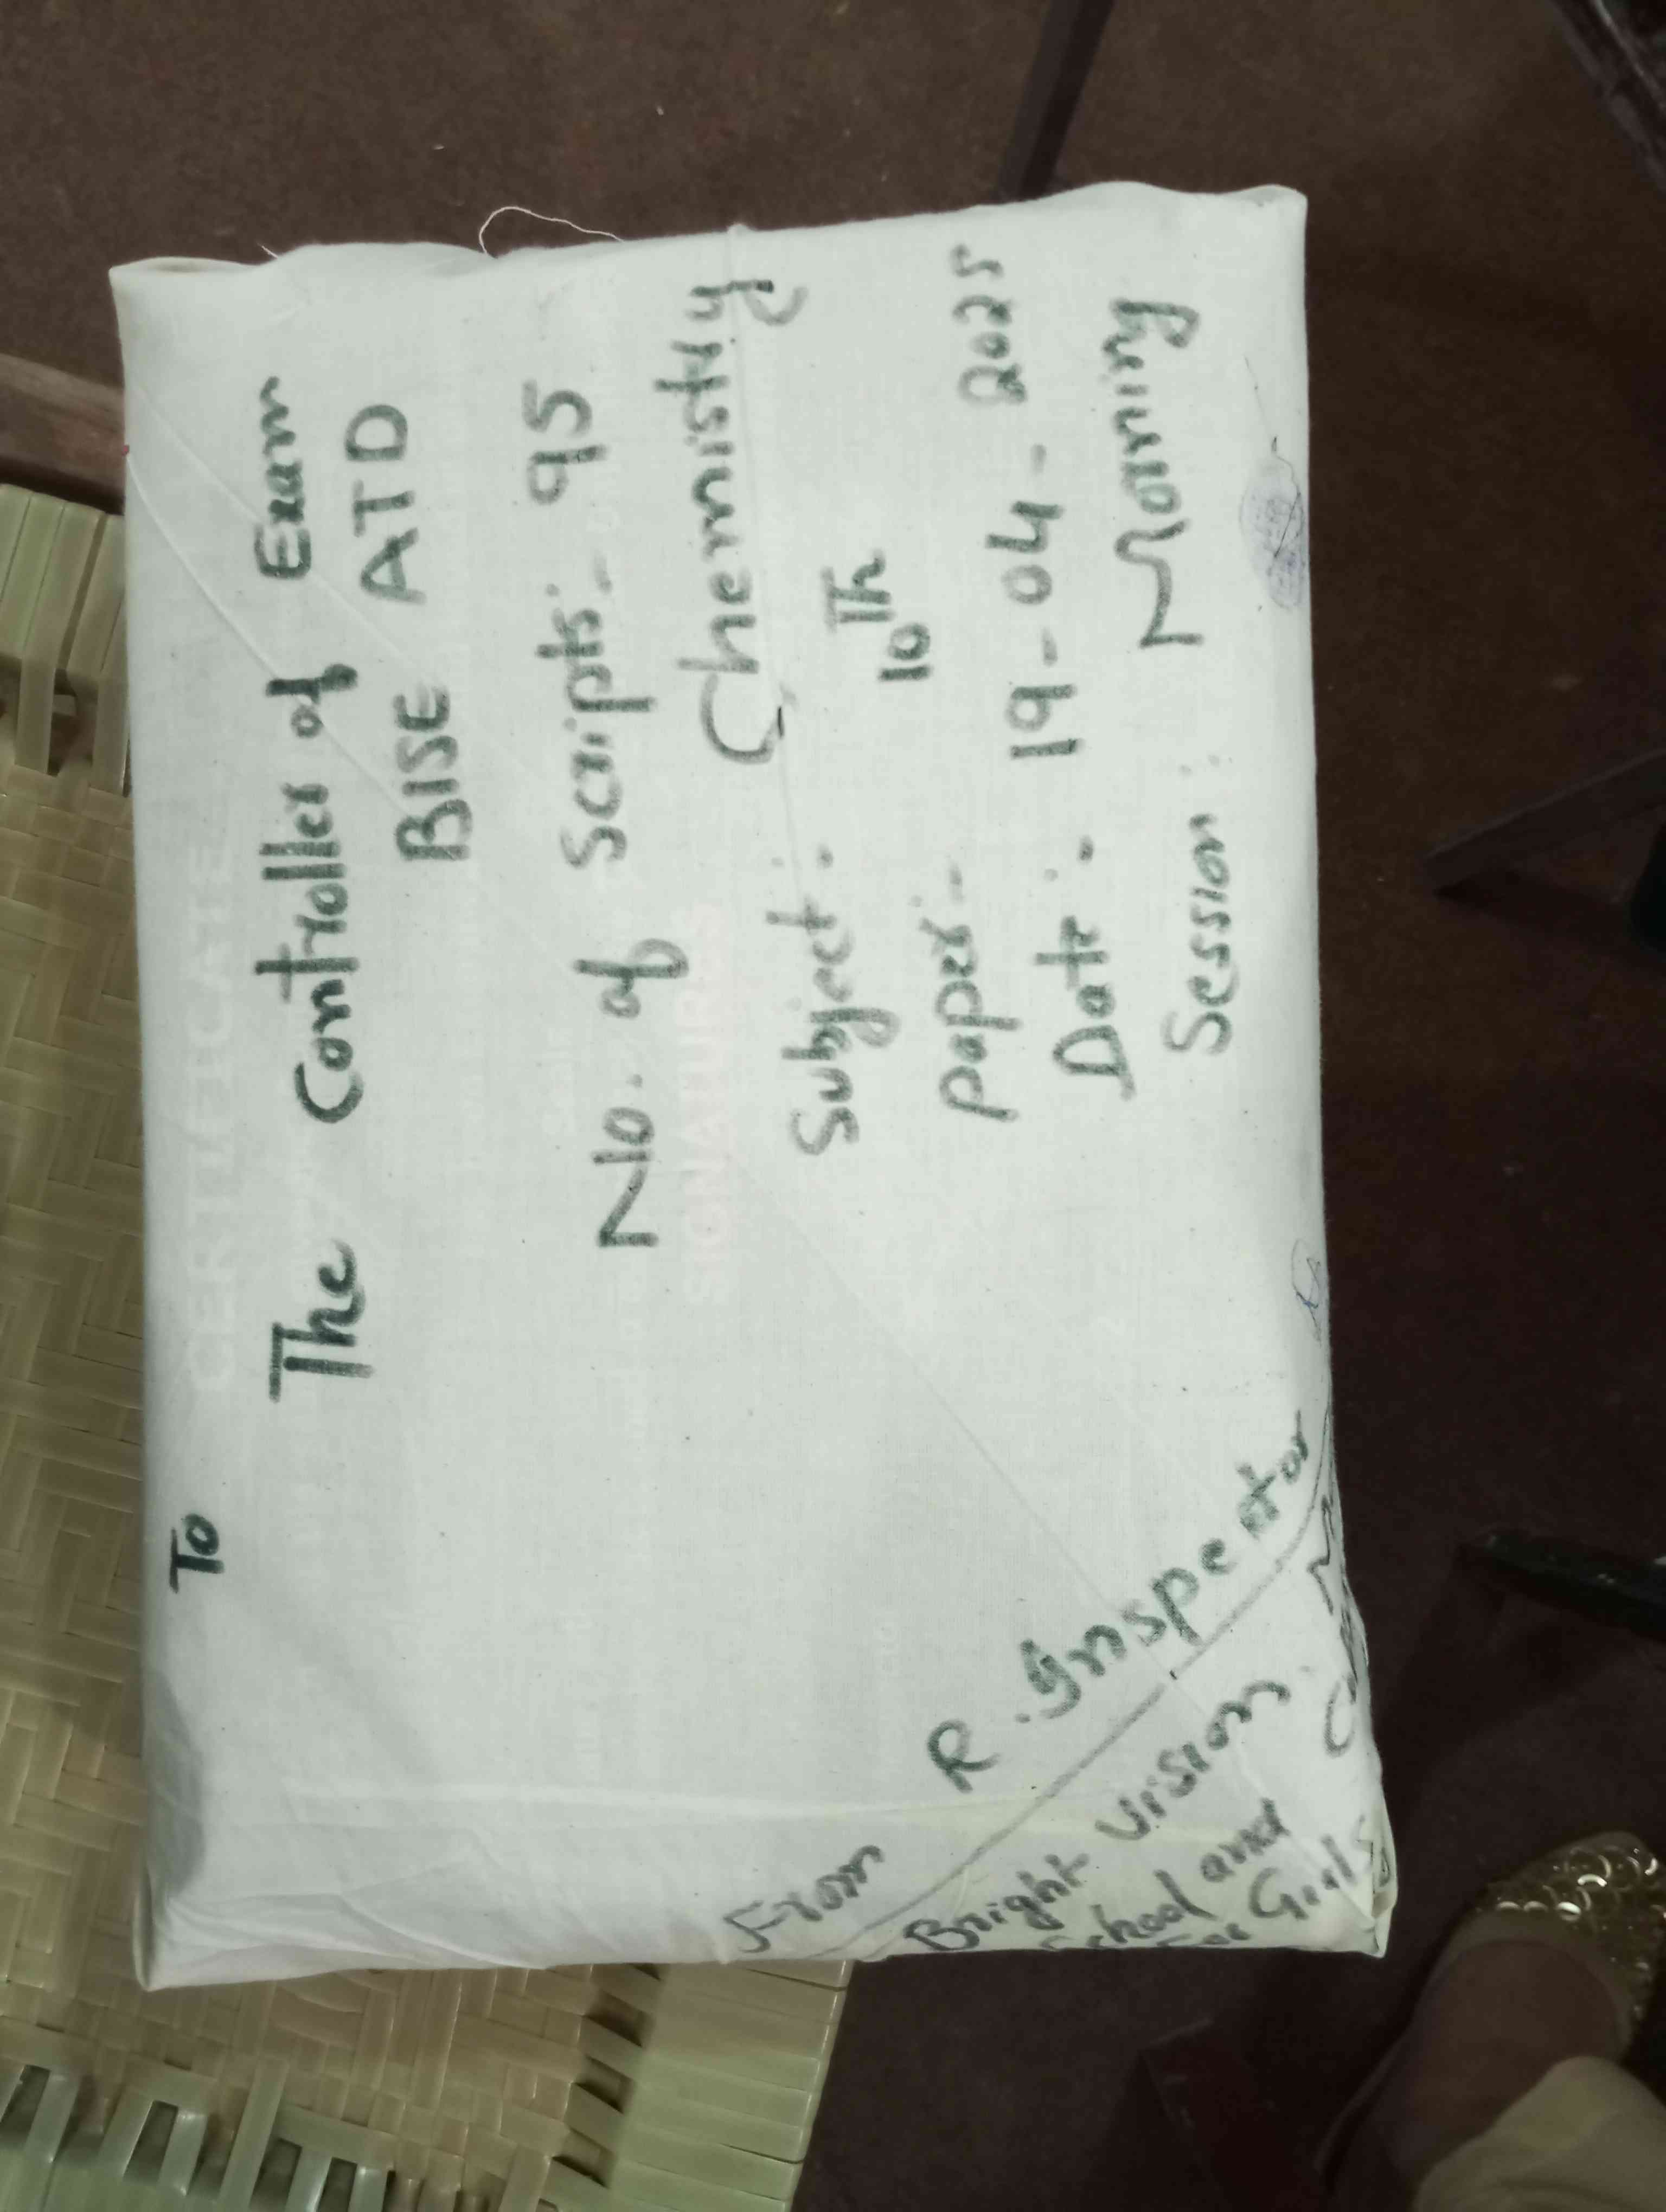 To
The Controller of Exam
BISE ATD
No. of Scripts:- 95
Subject:- Chemistry
paper:- 10Th
Date:- 19-04-2025
Session: Morning
From
R. Inspector
Bright Vision
School and
For Girls